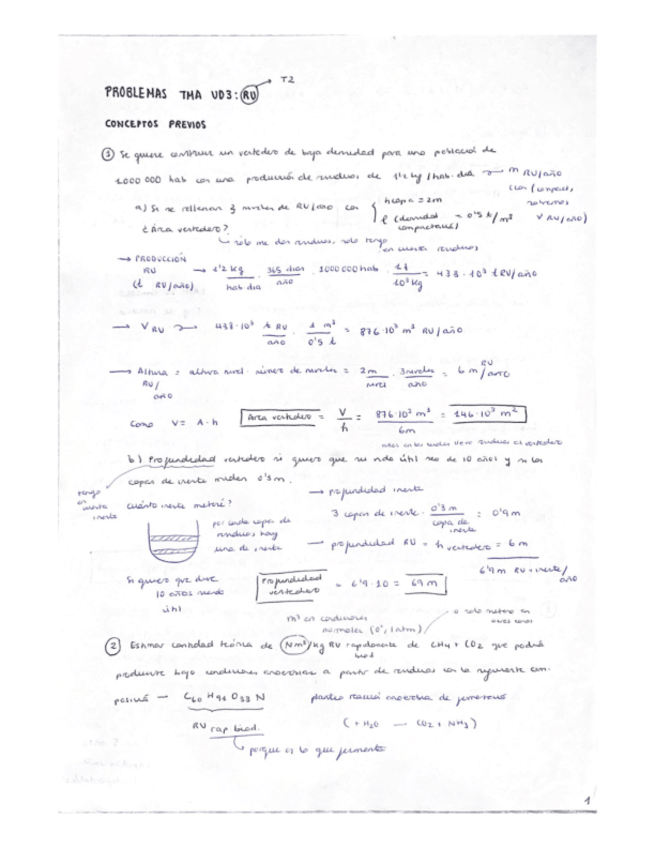 PROBLEMAS TMA UD3: RU → T2
CONCEPTOS PREVIOS
① Se quiere construir un vertedero de baja densidad para una población de
1000 000 hab con una producción de residuos de 1'2 kg/hab·día → m RU/año
a) Si se rellenan 3 niveles de RU/año con { h capa = 2m
ρ (densidad compactación) = 0'5 t/m³ V RU/año)
¿Área vertedero?
solo me dan residuos, solo tengo en cuenta residuos
→ PRODUCCIÓN RU (t RU/año) → 1'2 kg / hab día · 365 días / año · 1000000 hab · 1 t / 10³ kg = 438 · 10³ t RU/año
→ V RU → 438·10³ t RU / año · 1 m³ / 0'5 t = 876·10³ m³ RU/año
→ Altura RU/año = altura nivel · número de niveles = 2m / nivel · 3 niveles / año = 6 m RU/año
Como V = A·h Área vertedero = V / h = 876·10³ m³ / 6m = 146·10³ m²
b) Profundidad vertedero si quiero que su vida útil sea de 10 años y si las
capas de inerte miden 0'3 m.
tengo en cuenta inerte
¿Cuánto inerte meteré?
→ profundidad inerte
3 capas de inerte · 0'3 m / capa de inerte = 0'9 m
por cada capa de residuos, hay una de inerte
→ profundidad RU = h vertedero = 6 m
6'9 m RU + inerte/año
Si quiero que dure 10 años siendo útil
Profundidad vertedero = 6'9 · 10 = 69 m
m³ en condiciones normales (0°, 1atm)
② Estimar cantidad teórica de Nm³/kg RU rápidamente biod de CH4 + CO2 que podría
producirse bajo condiciones anaerobias a partir de residuos con la siguiente com-
posición — C60 H94 O38 N planteo reacción anaerobia de fermentos
RU rap biod. (+ H2O — CO2 + NH3)
porque es lo que fermenta
1